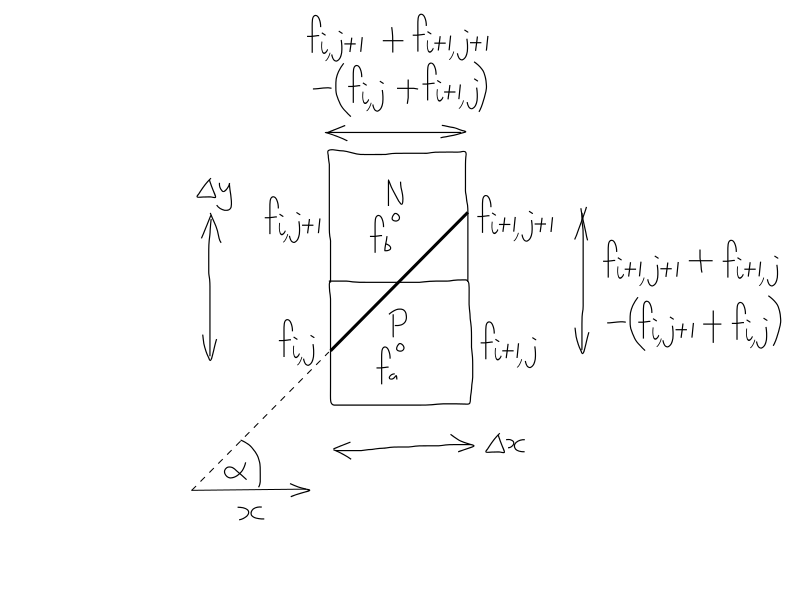 f_{i,j+1} + f_{i+1,j+1}
-(f_{i,j} + f_{i+1,j})
Δy
N
f_{i,j+1}
f_b
f_{i+1,j+1}
f_{i+1,j+1} + f_{i+1,j}
-(f_{i,j+1} + f_{i,j})
P
f_{i,j}
f_a
f_{i+1,j}
Δx
α
x